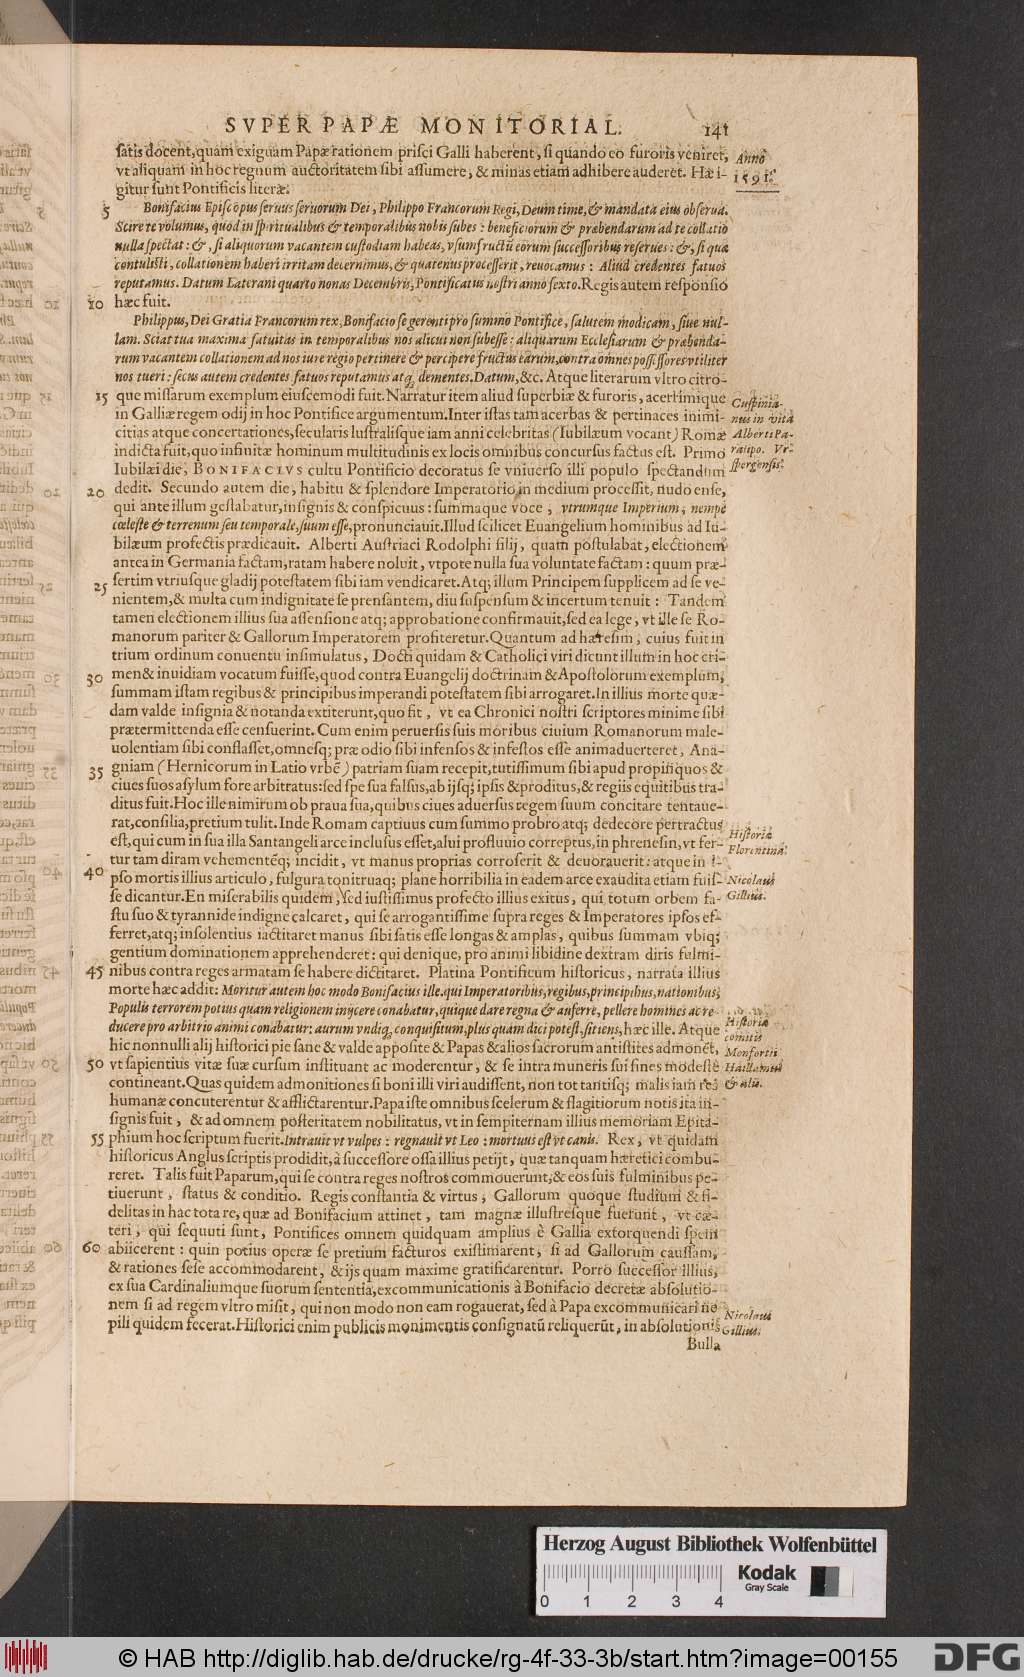 SVPER PAPÆ MONITORIAL. 141
ſatis docent, quam exiguam Papæ rationem priſci Galli haberent, ſi quando eo furoris veniret, Anno
vt aliquam in hoc regnum auctoritatem ſibi aſſumere, & minas etiam adhibere auderet. Hæ i- 1591.
gitur ſunt Pontificis literæ.
5 Bonifacius Epiſcopus ſeruus ſeruorum Dei, Philippo Francorum Regi, Deum time, & mandata eius obſerua.
Scire te volumus, quod in ſpiritualibus & temporalibus nobis ſubes: beneficiorum & præbendarum ad te collatio
nulla ſpectat: &, ſi aliquorum vacantem cuſtodiam habeas, vſumfructū eorum ſucceſſoribus reſerues: &, ſi quæ
contuliſti, collationem haberi irritam decernimus, & quatenus proceſſerit, reuocamus: Aliud credentes fatuos
reputamus. Datum Laterani quarto nonas Decembris, Pontificatus noſtri anno ſexto. Regis autem reſponſio
10 hæc fuit.
Philippus, Dei Gratia Francorum rex, Bonifacio ſe gerenti pro ſummo Pontifice, ſalutem modicam, ſiue nul-
lam. Sciat tua maxima fatuitas in temporalibus nos alicui non ſubeſſe: aliquarum Eccleſiarum & præbenda-
rum vacantem collationem ad nos iure regio pertinere & percipere fructus earum, contra omnes poſſeſſores vtiliter
nos tueri: ſecus autem credentes fatuos reputamus atq; dementes. Datum, &c. Atque literarum vltro citro-
15 que miſſarum exemplum eiuſcemodi fuit. Narratur item aliud ſuperbiæ & furoris, acerrimique Cuſpinia-
in Galliæ regem odij in hoc Pontifice argumentum. Inter iſtas tam acerbas & pertinaces inimi- nus in vita
citias atque concertationes, ſecularis luſtraliſque iam anni celebritas (Iubilæum vocant) Romæ Alberti Pa-
indicta fuit, quo infinitæ hominum multitudinis ex locis omnibus concurſus factus eſt. Primo raupo. Vr-
Iubilæi die, BONIFACIVS cultu Pontificio decoratus ſe vniuerſo illi populo ſpectandum ſpergenſis.
20 dedit. Secundo autem die, habitu & ſplendore Imperatorio in medium proceſſit, nudo enſe,
qui ante illum geſtabatur, inſignis & conſpicuus: ſummaque voce, vtrumque Imperium, nempe
cœleſte & terrenum ſeu temporale, ſuum eſſe, pronunciauit. Illud ſcilicet Euangelium hominibus ad Iu-
bilæum profectis prædicauit. Alberti Auſtriaci Rodolphi filij, quam poſtulabat, electionem
antea in Germania factam, ratam habere noluit, vtpote nulla ſua voluntate factam: quum præ-
25 ſertim vtriuſque gladij poteſtatem ſibi iam vendicaret. Atq; illum Principem ſupplicem ad ſe ve-
nientem, & multa cum indignitate ſe prenſantem, diu ſuſpenſum & incertum tenuit: Tandem
tamen electionem illius ſua aſſenſione atq; approbatione confirmauit, ſed ea lege, vt ille ſe Ro-
manorum pariter & Gallorum Imperatorem profiteretur. Quantum ad hæreſim, cuius fuit in
trium ordinum conuentu inſimulatus, Docti quidam & Catholici viri dicunt illum in hoc cri-
30 men & inuidiam vocatum fuiſſe, quod contra Euangelij doctrinam & Apoſtolorum exemplum,
ſummam iſtam regibus & principibus imperandi poteſtatem ſibi arrogaret. In illius morte quæ-
dam valde inſignia & notanda extiterunt, quo fit, vt ea Chronici noſtri ſcriptores minime ſibi
prætermittenda eſſe cenſuerint. Cum enim peruerſis ſuis moribus ciuium Romanorum male-
uolentiam ſibi conflaſſet, omneſq; præ odio ſibi infenſos & infeſtos eſſe animaduerteret, Ana-
35 gniam (Hernicorum in Latio vrbē) patriam ſuam recepit, tutiſſimum ſibi apud propinquos &
ciues ſuos aſylum fore arbitratus: ſed ſpe ſua falſus, ab ijſq; ipſis & proditus, & regiis equitibus tra-
ditus fuit. Hoc ille nimirum ob praua ſua, quibus ciues aduerſus regem ſuum concitare tentaue-
rat, conſilia, pretium tulit. Inde Romam captiuus cum ſummo probro atq; dedecore pertractus
eſt, qui cum in ſua illa Santangeli arce incluſus eſſet, alui profluuio correptus, in phreneſin, vt fer- Hiſtoria
tur tam diram vehementēq; incidit, vt manus proprias corroſerit & deuorauerit: atque in i- Florentina.
40 pſo mortis illius articulo, fulgura tonitruaq; plane horribilia in eadem arce exaudita etiam fuiſ- Nicolaus
ſe dicantur. En miſerabilis quidem, ſed iuſtiſſimus profecto illius exitus, qui totum orbem fa- Gillius.
ſtu ſuo & tyrannide indigne calcaret, qui ſe arrogantiſſime ſupra reges & Imperatores ipſos ef-
ferret, atq; inſolentius iactitaret manus ſibi ſatis eſſe longas & amplas, quibus ſummam vbiq;
gentium dominationem apprehenderet: qui denique, pro animi libidine dextram diris fulmi-
45 nibus contra reges armatam ſe habere dictitaret. Platina Pontificum hiſtoricus, narrata illius
morte hæc addit: Moritur autem hoc modo Bonifacius ille, qui Imperatoribus, regibus, principibus, nationibus,
Populis terrorem potius quam religionem inijcere conabatur, quique dare regna & auferre, pellere homines ac re-
ducere pro arbitrio animi conabatur: aurum vndiq; conquiſitum, plus quam dici poteſt, ſitiens, hæc ille. Atque Hiſtoria
hic nonnulli alij hiſtorici pie ſane & valde appoſite & Papas & alios ſacrorum antiſtites admonēt, comitis
50 vt ſapientius vitæ ſuæ curſum inſtituant ac moderentur, & ſe intra muneris ſui fines modeſte Monfortii
contineant. Quas quidem admonitiones ſi boni illi viri audiſſent, non tot tantiſq; malis iam res Haillanus
humanæ concuterentur & afflictarentur. Papa iſte omnibus ſcelerum & flagitiorum notis ita in- & alii.
ſignis fuit, & ad omnem poſteritatem nobilitatus, vt in ſempiternam illius memoriam Epita-
55 phium hoc ſcriptum fuerit. Intrauit vt vulpes: regnauit vt Leo: mortuus eſt vt canis. Rex, vt quidam
hiſtoricus Anglus ſcriptis prodidit, à ſucceſſore oſſa illius petijt, quæ tanquam hæretici combu-
reret. Talis fuit Paparum, qui ſe contra reges noſtros commouerunt, & eos ſuis fulminibus pe-
tiuerunt, ſtatus & conditio. Regis conſtantia & virtus, Gallorum quoque ſtudium & fi-
delitas in hac tota re, quæ ad Bonifacium attinet, tam magnæ illuſtreſque fuerunt, vt cæ-
teri, qui ſequuti ſunt, Pontifices omnem quidquam amplius è Gallia extorquendi ſpem
60 abiicerent: quin potius operæ ſe pretium facturos exiſtimarent, ſi ad Gallorum cauſſam,
& rationes ſeſe accommodarent, & ijs quam maxime gratificarentur. Porro ſucceſſor illius,
ex ſua Cardinaliumque ſuorum ſententia, excommunicationis à Bonifacio decretæ abſolutio-
nem ſi ad regem vltro miſit, qui non modo non eam rogauerat, ſed à Papa excommunicari ne Nicolaus
pili quidem fecerat. Hiſtorici enim publicis monimentis conſignatū reliquerūt, in abſolutionis Gillius.
Bulla
Herzog August Bibliothek Wolfenbüttel
0 1 2 3 4
Kodak
Gray Scale
© HAB http://diglib.hab.de/drucke/rg-4f-33-3b/start.htm?image=00155
DFG